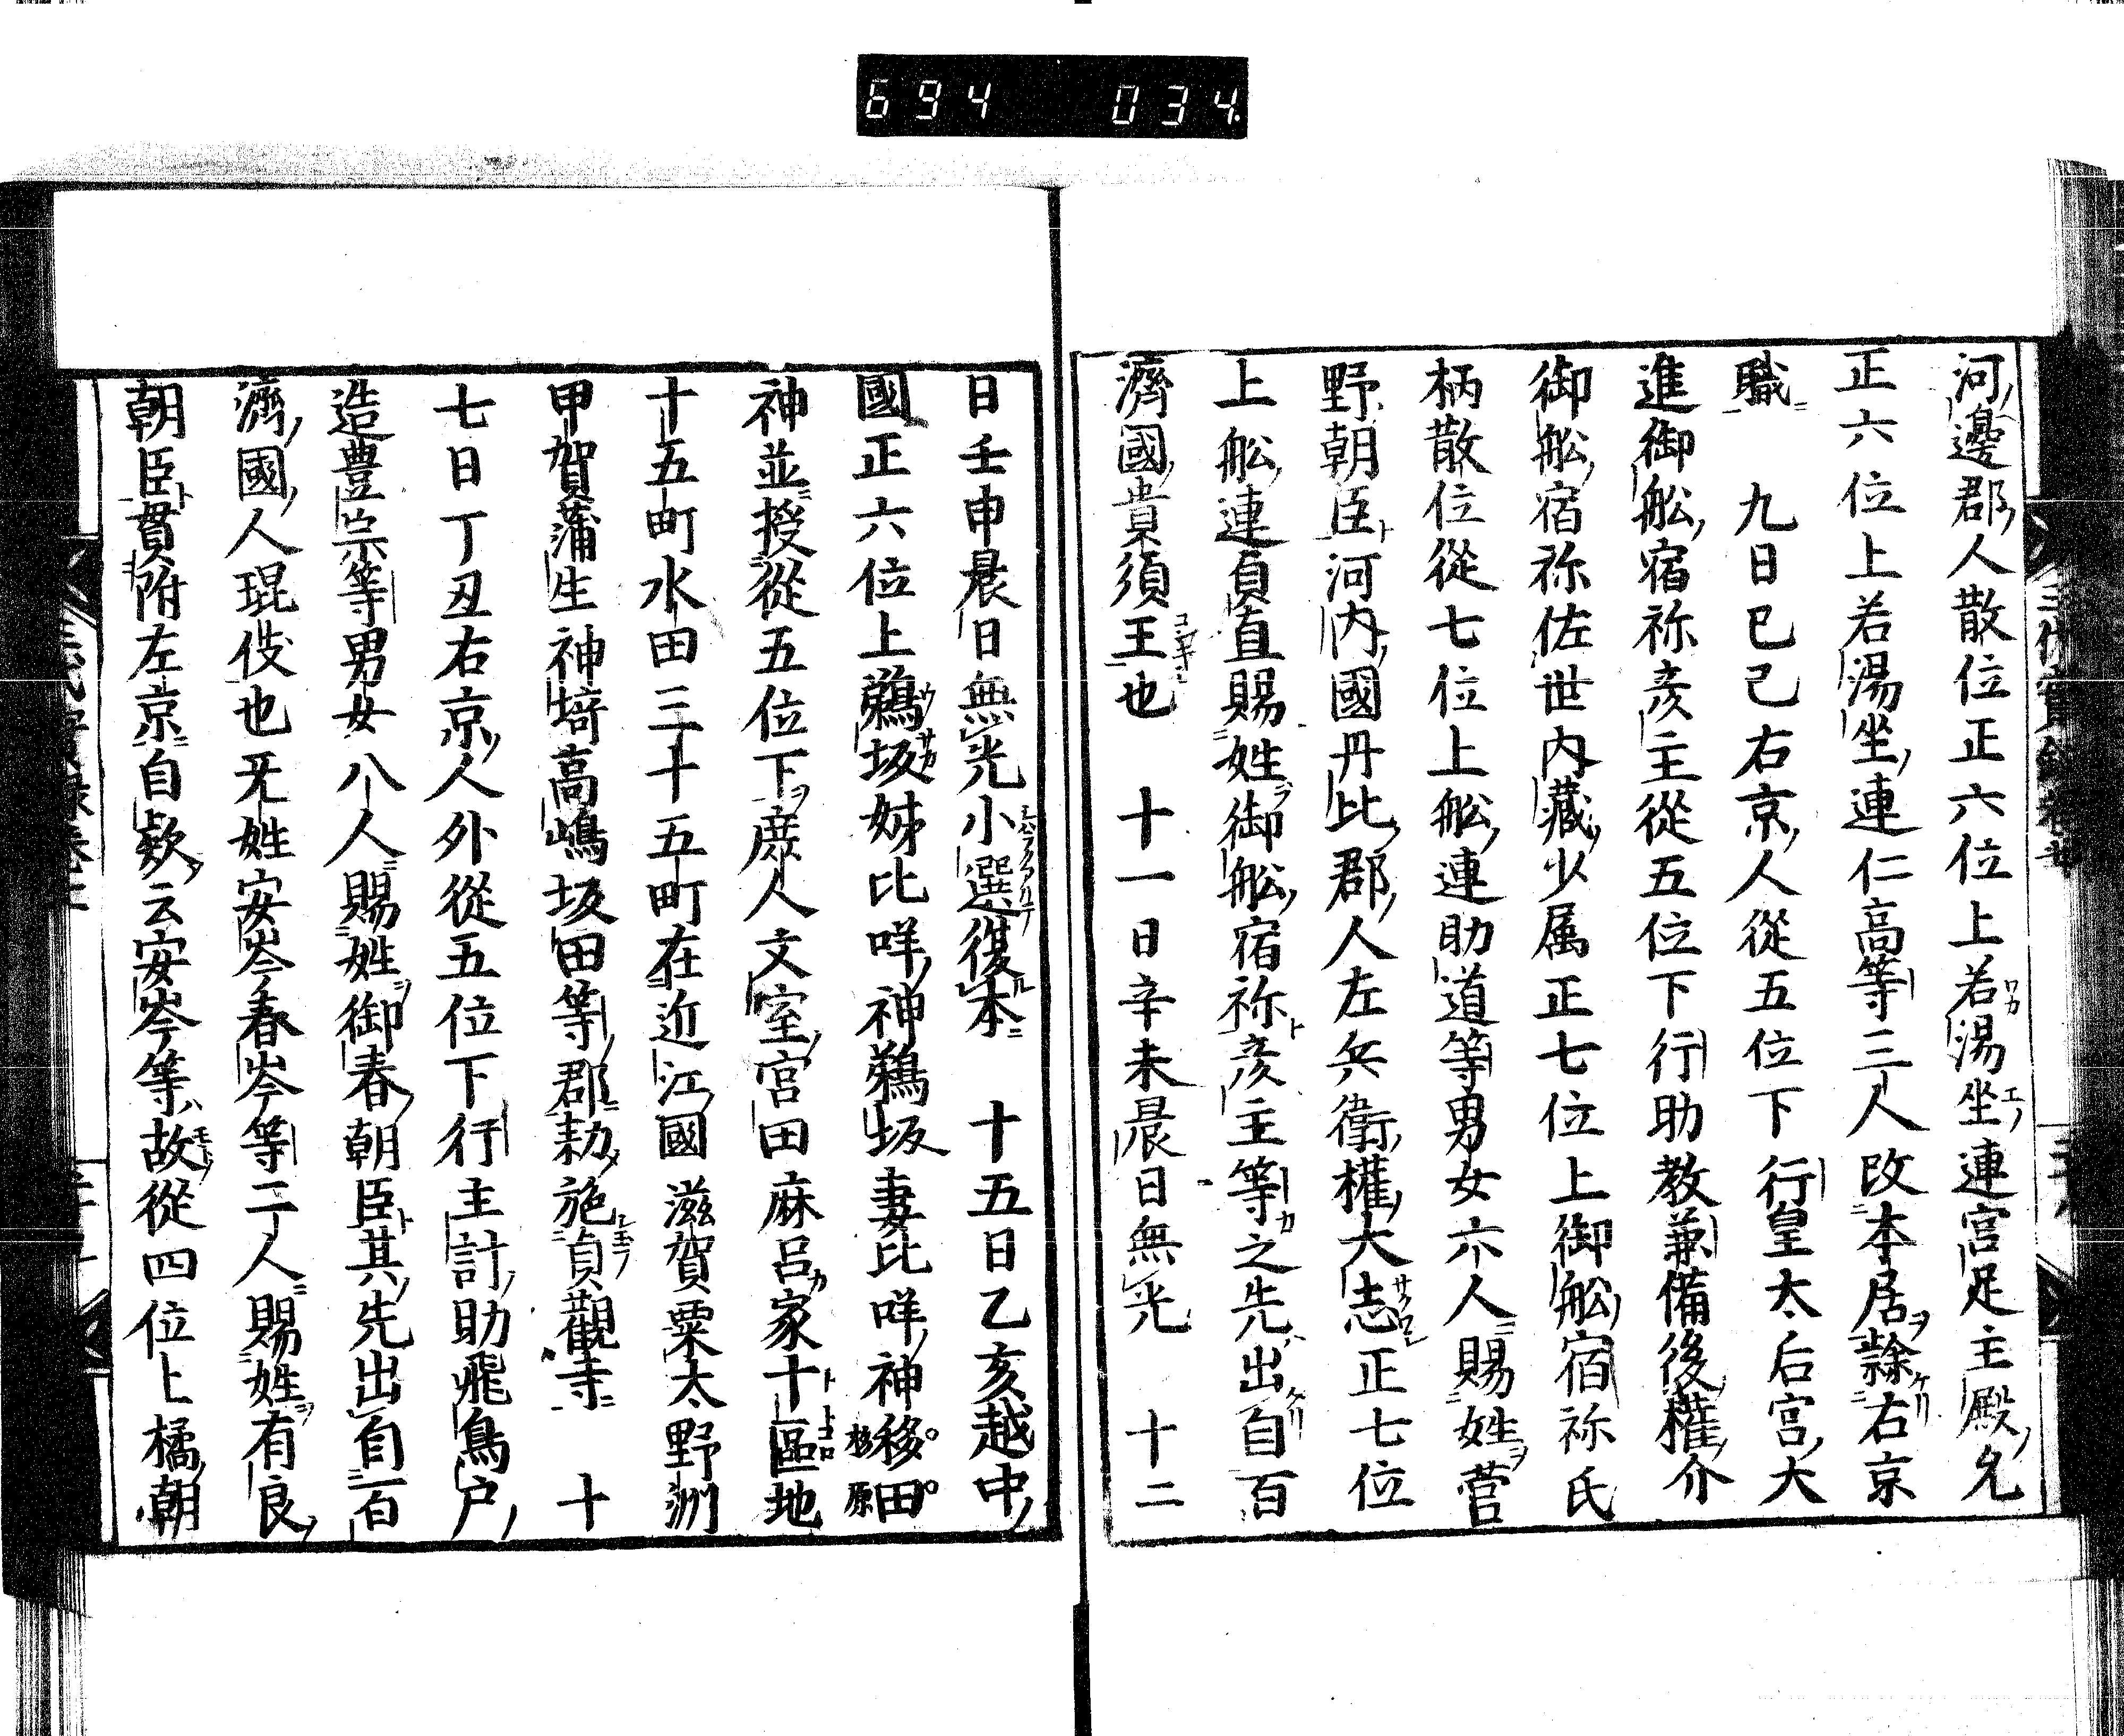 694 034
河邊郡人散位正六位上若湯坐連宮足主殿允
正六位上若湯坐連仁高等三人改本居隸右京
職 九日己巳右京人從五位下行皇太后宮大
進御舩宿祢彦主從五位下行助教兼備後權介
御舩宿祢佐世内藏少属正七位上御舩宿祢氏
柄散位從七位上舩連助道等男女六人賜姓菅
野朝臣河内國丹比郡人左兵衛權大志正七位
上舩連貞直賜姓御舩宿祢彦主等之先出自百
濟國貴須王也 十一日辛未晨日無光 十二
日壬申晨日無光小選復本 十五日乙亥越中
國正六位上鵜坂姊比咩神鵜坂妻比咩神移田杉原
神並授從五位下庶人文室宮田麻呂家十區地
十五町水田三十五町在近江國滋賀粟太野洲
甲賀蒲生神埼高嶋坂田等郡勅施貞觀寺 十
七日丁丑右京人外從五位下行主計助飛鳥戸
造豊宗等男女八人賜姓御春朝臣其先出自百
濟國人琨伎也旡姓安岑春岑等二人賜姓有良
朝臣貫附左京自欵云安岑等故從四位上橘朝